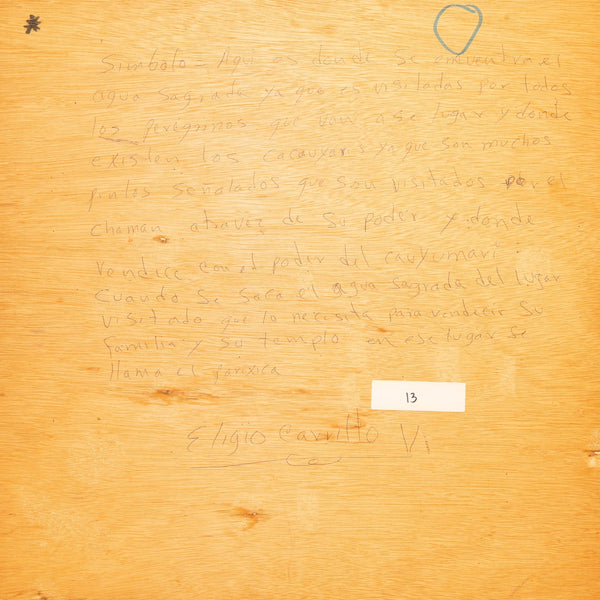 Simbolo = Aqui es donde se encuentra el
agua sagrada ya que es visitadas por todos
los peregrinos que van a ese lugar y donde
existen los cacauyari ya que son muchos
puntos señalados que son visitados por el
chaman atravez de su poder y donde
vendice con el poder del cauyumari
cuando se saca el agua sagrada del lugar
visitado que lo necesita para vendecir su
familia y su templo en ese lugar se
llama el
13
Eligio Carrillo Vi